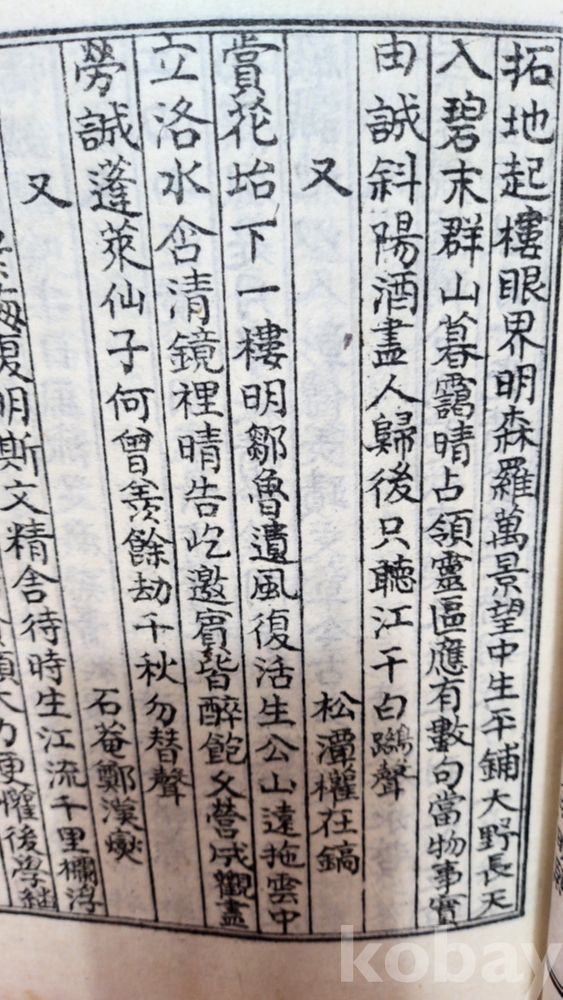 拓地起樓眼界明森羅萬景望中生平鋪大野長天
入碧末群山暮靄晴占領靈區應有數句當物事實
由誠斜陽酒盡人歸後只聽江干白鷗聲
又 松潭權在鎬
賞花坮下一樓明鄒魯遺風復活生公山遠拖雲中
立洛水含清鏡裡晴告屹邀賓皆醉飽父營成觀盡
勞誠蓬萊仙子何曾羨餘劫千秋勿替聲
又 石菴鄭漢燮
海夏明斯文精舍待時生江流千里欄浮
須大力更懼後學繼
kobay